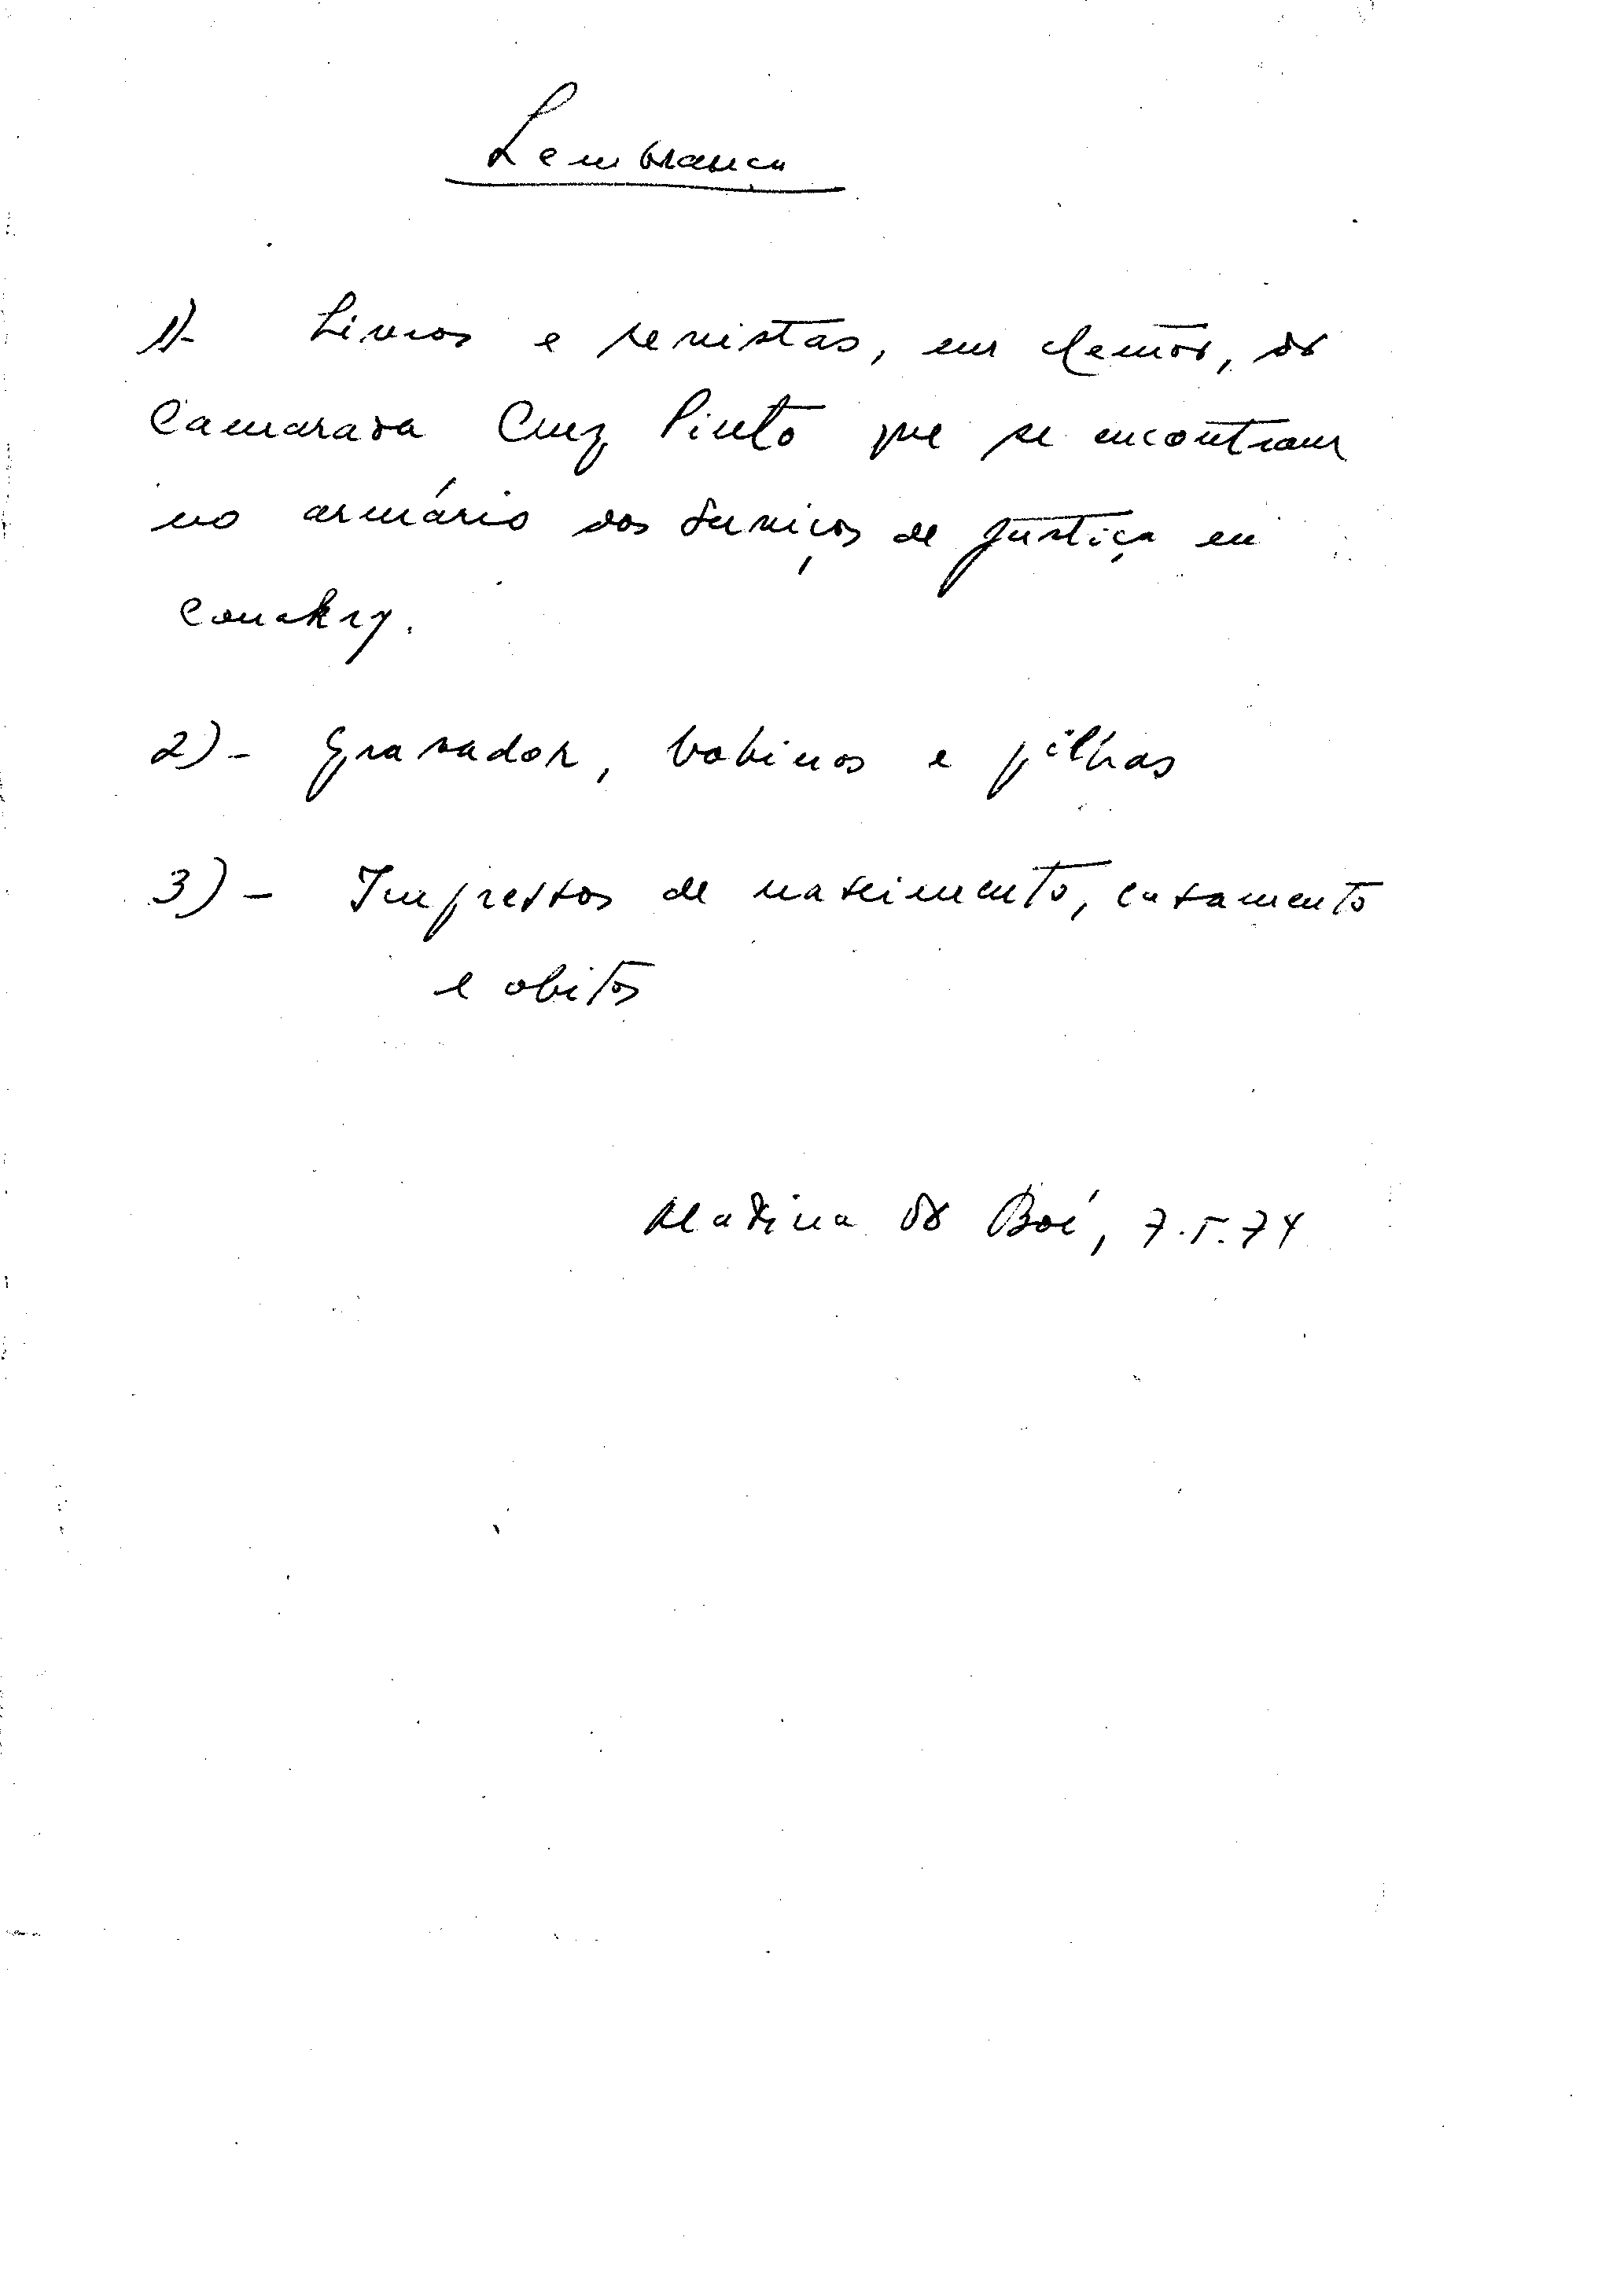 Lembrança
1)- Livros e revistas, em alemão, do
Camarada Cruz Pinto que se encontram
no armário dos Serviços de Justiça em
Conakry.
2)- Gravador, bobinos e pilhas
3)- Impressos de nascimento, casamento
e obitos
Madina do Boé, 7.5.74